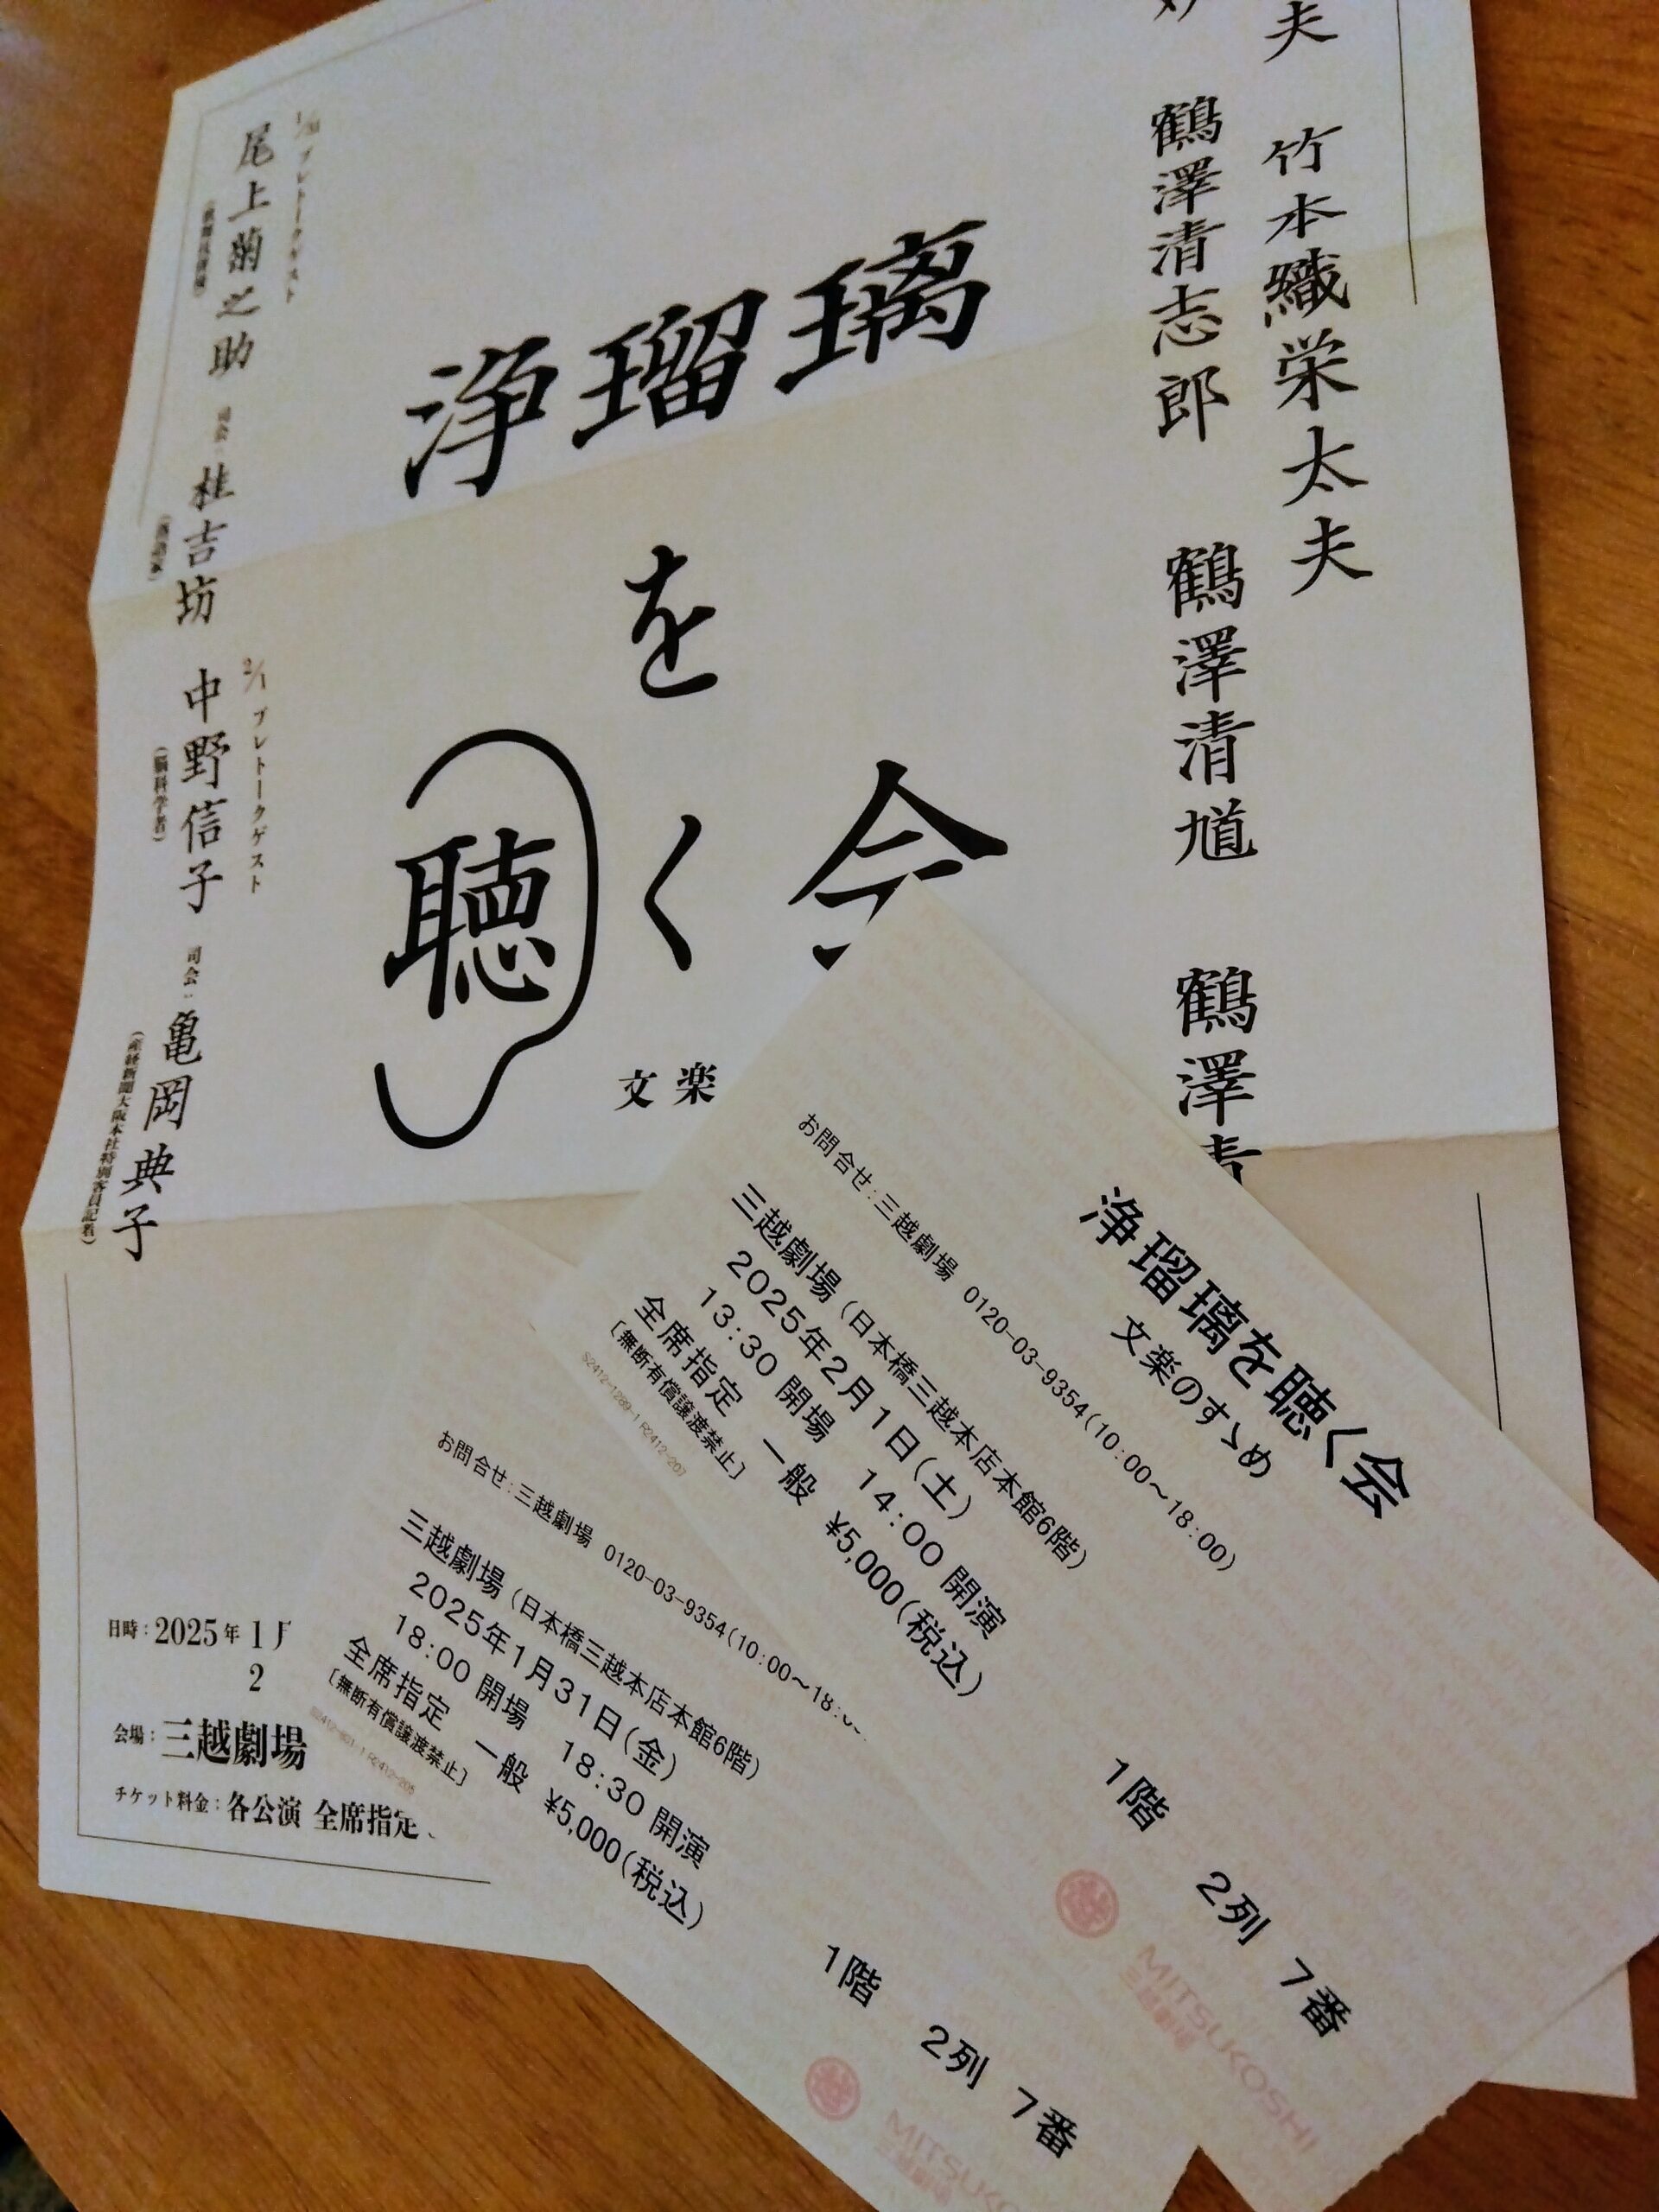 夫 竹本織栄太夫
鶴澤清志郎 鶴澤清馗 鶴澤清
浄瑠璃
を
聴く会
文楽
1/31 プレトークゲスト
尾上菊之助
司会:桂吉坊
(落語家)
2/1 プレトークゲスト
中野信子
(脳科学者)
司会:亀岡典子
(産経新聞大阪本社特別客員記者)
日時:2025年1月
2
会場:三越劇場
チケット料金:各公演 全席指定
浄瑠璃を聴く会
文楽のすゝめ
お問合せ:三越劇場 0120-03-9354(10:00~18:00)
三越劇場(日本橋三越本店本館6階)
2025年2月1日(土)
13:30 開場 14:00 開演
全席指定 一般 ¥5,000(税込)
[無断有償譲渡禁止]
S2412-1289-1 R2412-207
1階 2列 7番
MITSUKOSHI
三越劇場
お問合せ:三越劇場 0120-03-9354(10:00~18:
三越劇場(日本橋三越本店本館6階)
2025年1月31日(金)
18:00 開場 18:30 開演
全席指定 一般 ¥5,000(税込)
[無断有償譲渡禁止]
1階 2列 7番
MITSUKOSHI
三越劇場